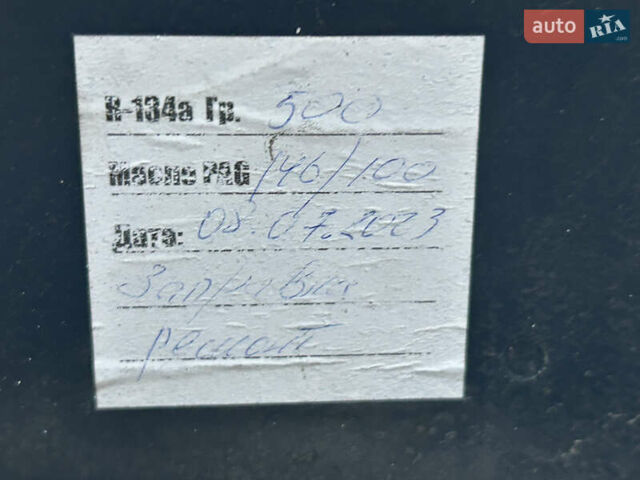 auto RIA.com
R-134a Гр. 500
Масло PAG 146/100
Дата: 08.07.2023
Заправка
ремонт